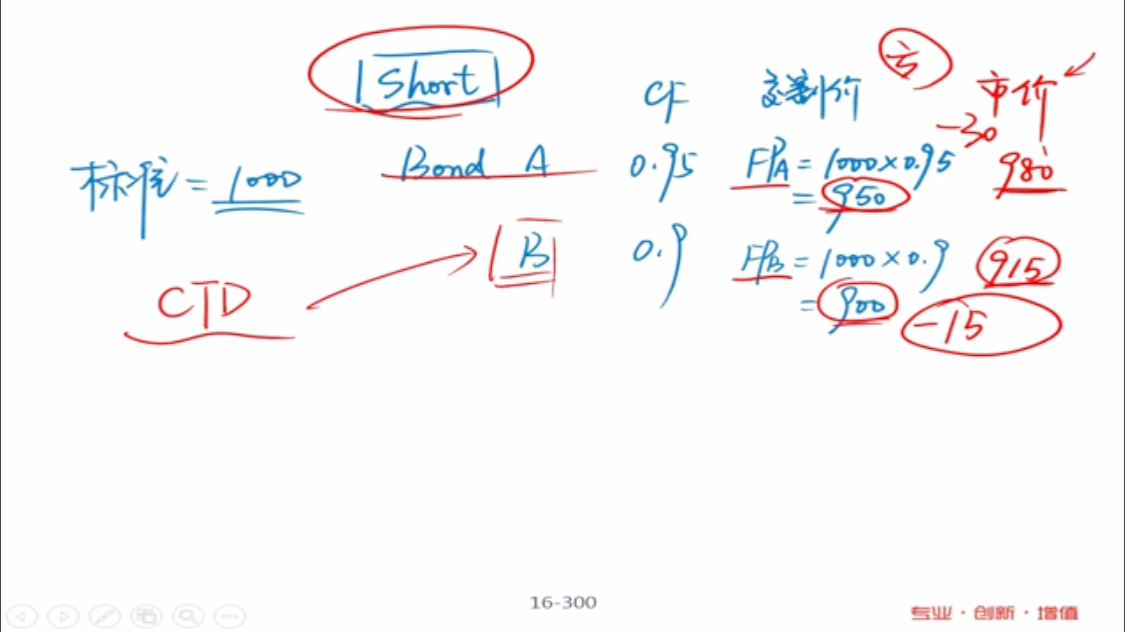 Short CF 交割价 亏 市价
标准 = 1000 Bond A 0.95 FPA = 1000×0.95 -30 980
= 950
B 0.9 FPB = 1000×0.9 915
CTD = 900 -15
16-300
专业·创新·增值